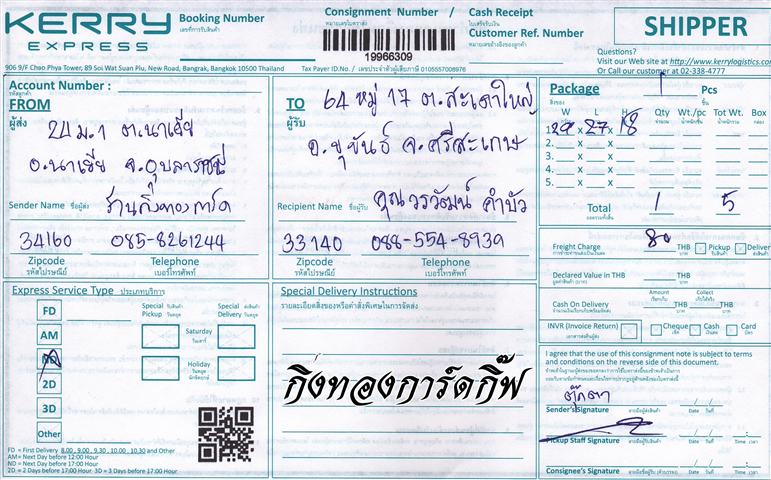 KERRY
EXPRESS
Booking Number
เลขที่การรับสินค้า
Consignment Number /
หมายเลขใบตราส่ง
19966309
Cash Receipt
ใบเสร็จรับเงิน
Customer Ref. Number
หมายเลขอ้างอิงของลูกค้า
SHIPPER
Questions?
Visit our Web site at http://www.kerrylogistics.com/
Or Call our customer at 02-338-4777
906 9/F Chao Phya Tower, 89 Soi Wat Suan Plu, New Road, Bangrak, Bangkok 10500 Thailand
Tax Payer ID.No. / เลขประจำตัวผู้เสียภาษี 0105557008976
Account Number :
รหัสลูกค้า
FROM
ผู้ส่ง
24 ม.1 ต.นาเยีย
อ.นาเยีย จ.อุบลราชธานี
Sender Name ชื่อผู้ส่ง ร้านกิ่งทองการ์ด
34160 085-8261244
Zipcode Telephone
รหัสไปรษณีย์ เบอร์โทรศัพท์
TO
ผู้รับ
64 หมู่ 17 ต.สะเดาใหญ่
อ.ขุขันธ์ จ.ศรีสะเกษ
Recipient Name ชื่อผู้รับ คุณวรวัฒน์ คำบัว
33140 088-554-8939
Zipcode Telephone
รหัสไปรษณีย์ เบอร์โทรศัพท์
Package 1 Pcs
สิ่งของ ชิ้น
W L H Qty Wt./pc Tot Wt. Box
1. 29 x 27 x 18
2. x x
3. x x
4. x x
5. x x
Total 1 5
Freight Charge 80 THB Pickup Deliver
Declared Value in THB THB
Amount Collect
Cash On Delivery THB THB
INVR (Invoice Return) Cheque Cash Card
Express Service Type ประเภทบริการ
FD
AM
2D
3D
Other
Special Pickup
Special Delivery
Saturday
วันเสาร์
Holiday
วันหยุด
นักขัตฤกษ์
FD = First Delivery 8.00, 9.00, 9.30, 10.00, 10.30 and Other
AM = Next Day before 12:00 Hour
ND = Next Day before 17:00 Hour
2D = 2 Days before 17:00 Hour 3D = 3 Days before 17:00 Hour
Special Delivery Instructions
รายละเอียดสิ่งของหรือคำสั่งพิเศษในการจัดส่ง
กิ่งทองการ์ดกิ๊ฟ
I agree that the use of this consignment note is subject to terms
and conditions on the reverse side of this document.
ตุ๊กตา
Sender's Signature ลายมือชื่อผู้ส่งสินค้า Date วันที่
Pickup Staff Signature Date วันที่ Time เวลา
Consignee's Signature Date วันที่ Time เวลา